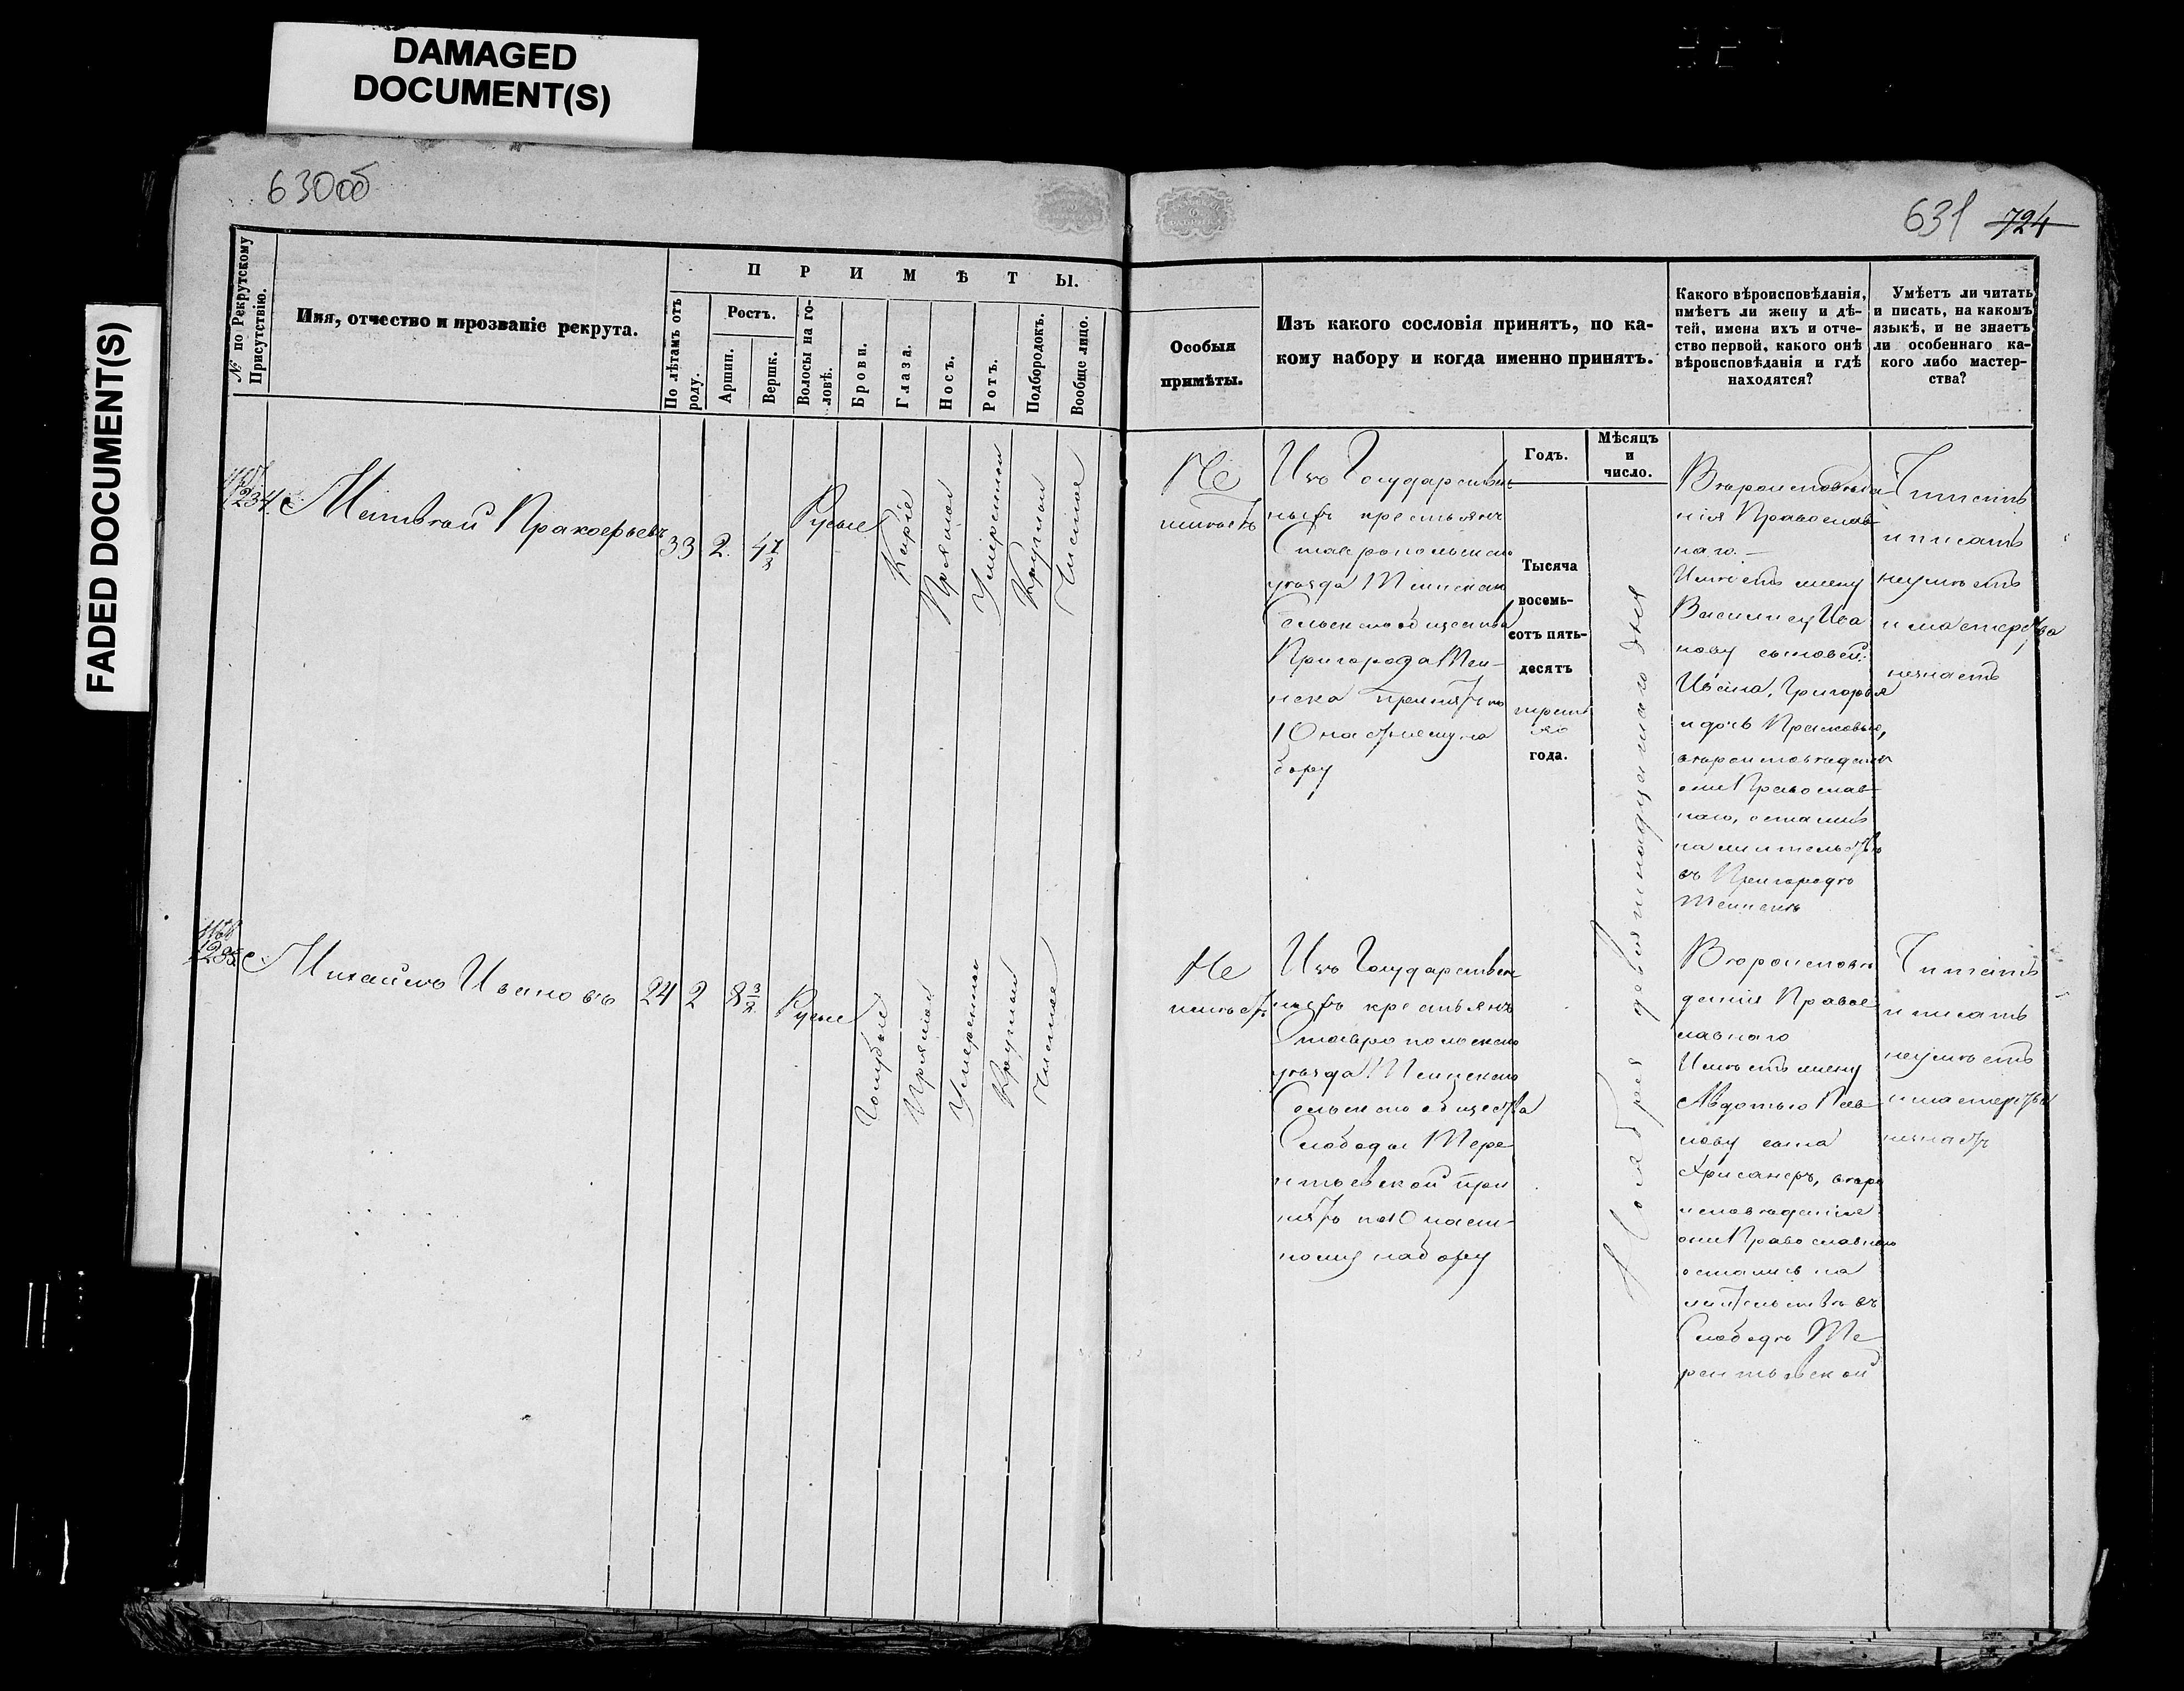 DAMAGED
DOCUMENT(S)
FADED DOCUMENT(S)
630об
631 724
№ по Рекрутскому
Присутствію.
Имя, отчество и прозваніе рекрута.
П Р И М Ѣ Т Ы.
По лѣтамъ отъ
роду.
Ростъ.
Аршин.
Вершк.
Волосы на го-
ловѣ.
Брови.
Глаза.
Носъ.
Ротъ.
Подбородокъ.
Вообще лицо.
Особыя
примѣты.
Изъ какого сословія принятъ, по ка-
кому набору и когда именно принятъ.
Какого вѣроисповѣданія,
имѣетъ ли жену и дѣ-
тей, имена ихъ и отче-
ство первой, какого онѣ
вѣроисповѣданія и гдѣ
находятся?
Умѣетъ ли читать
и писать, на какомъ
языкѣ, и не знаетъ
ли особеннаго ка-
кого либо мастер-
ства?
Годъ.
Мѣсяцъ
и
число.
Тысяча
восемь-
сотъ пять-
десятъ
третья
го
года.
Ноября девятнадцатаго дня
1234.
Матвѣй Пракофьевъ
33 2.
Русые
Каріе
Прямой
Умѣренной
Круглой
Чистое
Не
имѣетъ
Изъ Государствен
ныхъ крестьянъ
Ставропольскаго
уѣзда
Сельскаго общества
Пригорода
принятъ по
10 частному на
бору
Вѣроисповѣда
нія Православ
наго.
Имѣетъ жену
Василису Ива
нову сыновей:
Ивана, Григорья
и дочь Прасковью,
вѣроисповѣданія
они Православ
наго, остались
на жительствѣ
въ Пригородѣ
Читать
и писать
неумѣетъ
и мастерства
незнаетъ
1235.
Михайло Ивановъ
24 2
Русые
Голубые
Прямой
Умеренной
Круглый
Чистое
Не
имѣетъ
Изъ Государствен
ныхъ крестьянъ
Ставропольскаго
уѣзда
Сельскаго общества
Слободы Тере
нтьевской при
нятъ по 10 част
ному набору
Вѣроисповѣ
данія Правос
лавнаго
Имѣетъ жену
Авдотью Пав
лову сына
вѣро
исповѣданія
они Православнаго
остались на
жительствѣ въ
Слободѣ Те
рентьевской
Читать
и писать
неумѣетъ
и мастерства
незнаетъ